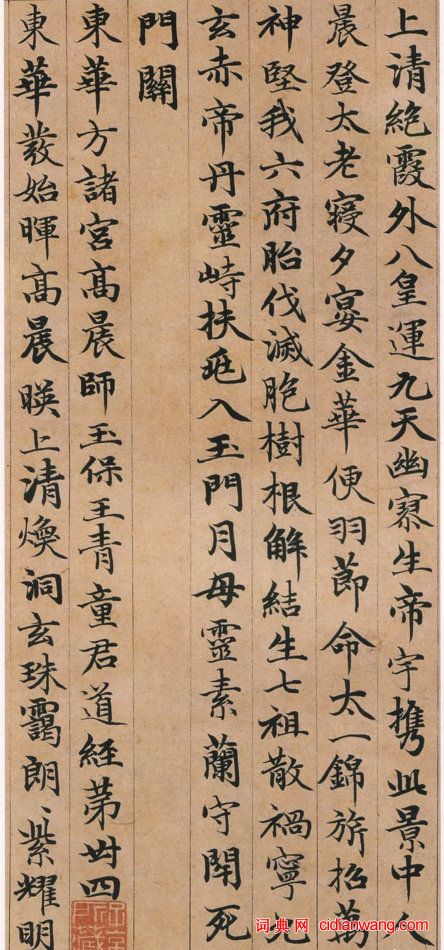 上清絶霞外八皇運九天幽寥生帝宇攜此景中人
晨登太老寢夕宴金華便羽節命太一錦旂招萬
神堅我六府胎伐滅胞樹根解結生七祖散禍寧九
玄赤帝丹靈峙扶入玉門月母靈素蘭守閇死
門關
東華方諸宮高晨師玉保王青童君道經苐卌四
東華發始暉高晨暎上清煥洞玄珠靄朗〻紫耀明
词典网 cidianwang.com